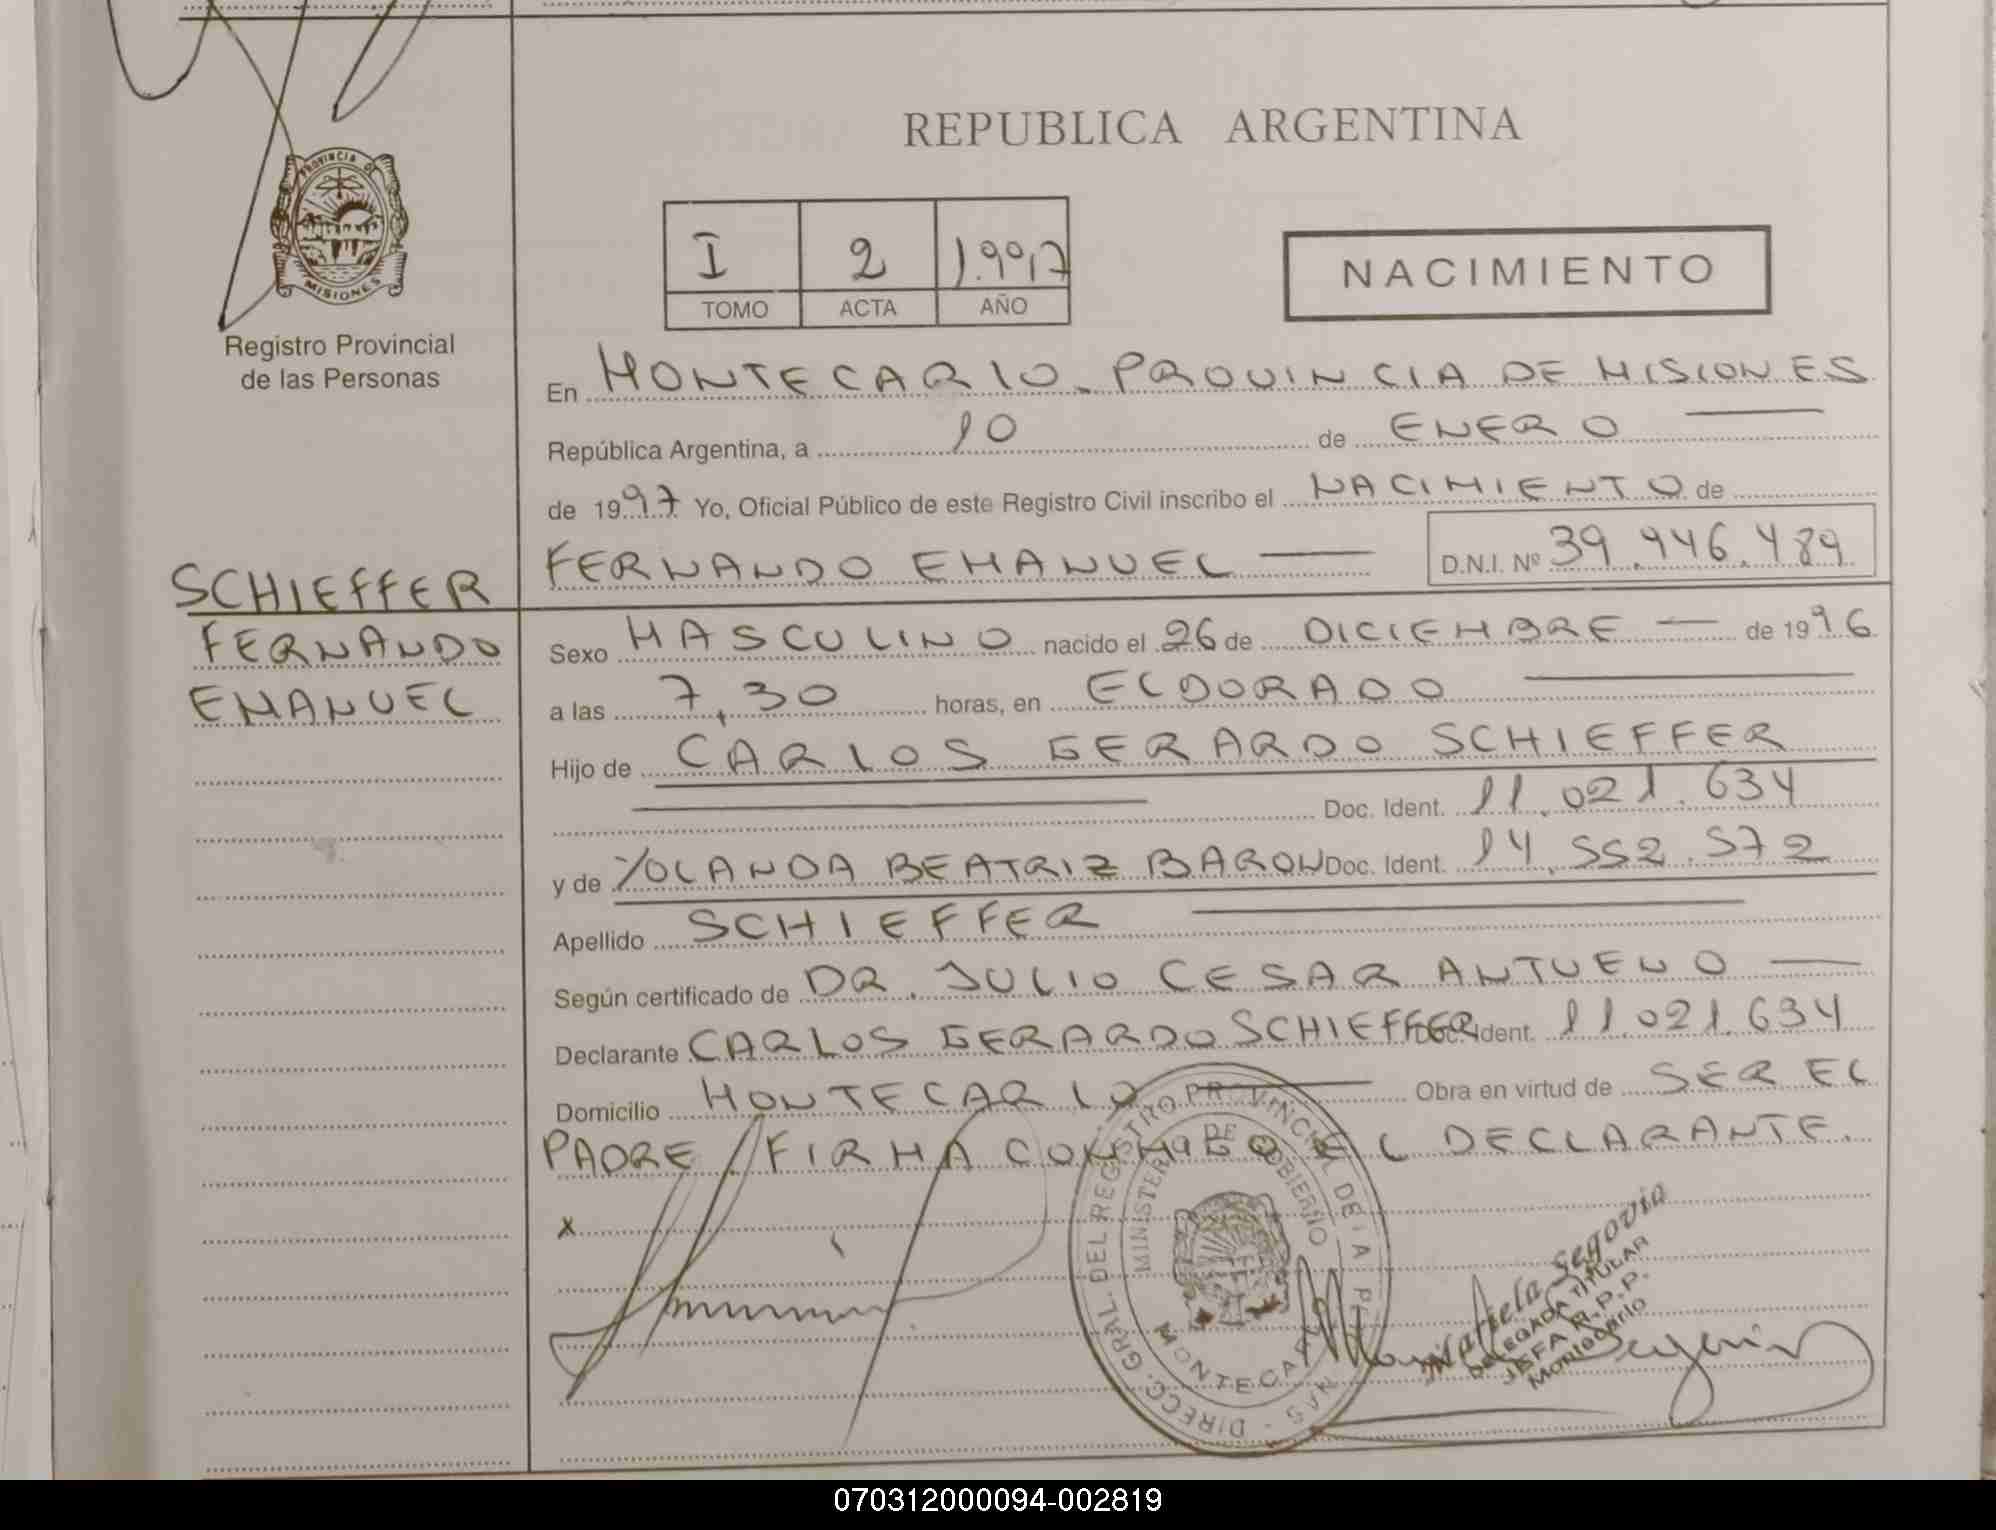 REPUBLICA ARGENTINA
PROVINCIA DE
MISIONES
Registro Provincial
de las Personas
I 2 1.997
TOMO ACTA AÑO
NACIMIENTO
En MONTECARLO. PROVINCIA DE MISIONES
República Argentina, a 10 de ENERO
de 1997 Yo, Oficial Público de este Registro Civil inscribo el NACIMIENTO de
FERNANDO EMANUEL D.N.I. Nº 39.946.489
SCHIEFFER
FERNANDO
EMANUEL
Sexo MASCULINO nacido el 26 de DICIEMBRE de 1996
a las 7,30 horas, en ELDORADO
Hijo de CARLOS GERARDO SCHIEFFER
Doc. Ident. 11.021.634
y de YOLANDA BEATRIZ BARON Doc. Ident. 14.552.572
Apellido SCHIEFFER
Según certificado de DR. JULIO CESAR ANTUENO
Declarante CARLOS GERARDO SCHIEFFER Doc. Ident. 11.021.634
Domicilio MONTECARLO Obra en virtud de SER EL
PADRE. FIRMA CONMIGO EL DECLARANTE.
x
DIRECC. GRAL. DEL REGISTRO PROVINCIAL DE LA P
NAS
MINISTERIO DE GOBIERNO
MONTECARLO
Mariela Segovia
DELEGADA TITULAR
JEFA R.P.P.
Montecarlo
070312000094-002819